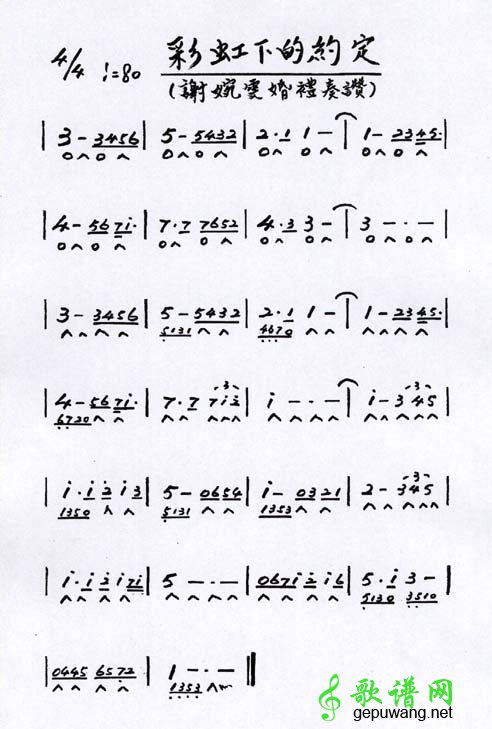 4/4 ♩=80 彩虹下的約定
(謝婉雯婚禮奏讚)
| 3 - 3456 | 5 - 5432 | 2·1 1 - | 1 - 2345· |
0^0^ 0^0^ 0^0^ ^0^0^
| 4 - 567i· | 7·7 7652 | 4·3 3 - | 3 - · - |
0^0^ 0^0^ 0^0^ ^0^^
| 3 - 3456 | 5 - 5432 | 2·1 1 - | 1 - 2345· |
^^^^ 5131^^ 4670^^ ^^^^
| 4 - 567i· | 7·7 7i2 | i - · - | i - 345 |
6720^^ ^^^^ ^^^^ ^^^^
| i·i 2 i 3 | 5 - 0654 | i - 0321 | 2 - 345 |
1350^^ 5131^^ 1353^^ ^^^^^
| i·i 2 i 7i | 5 - · - | 067i 2 i6 | 5·i 3 - |
^^^^ ^^^^ ^^^^ 5130 3510
| 0445 6572 | 1 - · - ||
^^^^ 1353^^
歌谱网
gepuwang.net